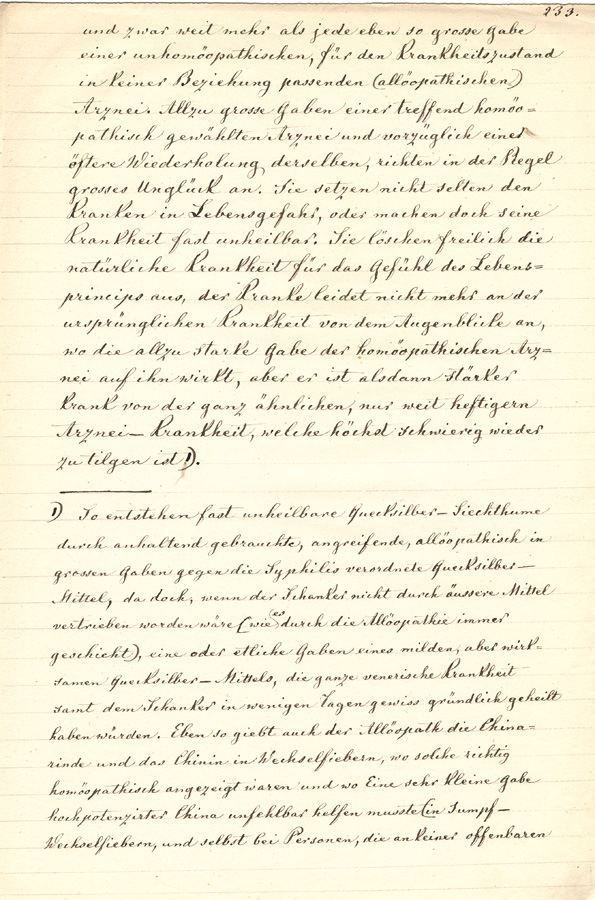 233.
und zwar weit mehr als jede eben so grosse Gabe
einer unhomöopathischen, für den Krankheitszustand
in keiner Beziehung passenden (allöopathischen)
Arznei. Allzu grosse Gaben einer treffend homöo=
pathisch gewählten Arznei und vorzüglich eine
öftere Wiederholung derselben, richten in der Regel
grosses Unglück an. Sie setzen nicht selten den
Kranken in Lebensgefahr, oder machen doch seine
Krankheit fast unheilbar. Sie löschen freilich die
natürliche Krankheit für das Gefühl des Lebens=
princips aus, der Kranke leidet nicht mehr an der
ursprünglichen Krankheit von dem Augenblicke an,
wo die allzu starke Gabe der homöopathischen Arz=
nei auf ihn wirkt, aber er ist alsdann stärker
krank von der ganz ähnlichen, nur weit heftigern
Arznei—Krankheit, welche höchst schwierig wieder
zu tilgen ist 1).
1) So entstehen fast unheilbare Quecksilber—Siechthume
durch anhaltend gebrauchte, angreifende, allöopathisch in
grossen Gaben gegen die Syphilis verordnete Quecksilber—
Mittel, da doch, wenn der Schanker nicht durch äussere Mittel
vertrieben worden wäre (wie es durch die Allöopathie immer
geschieht), eine oder etliche Gaben eines milden, aber wirk-
samen Quecksilber—Mittels, die ganze venerische Krankheit
samt dem Schanker in wenigen Tagen gewiss gründlich geheilt
haben würden. Eben so giebt auch der Allöopath die China=
rinde und das Chinin in Wechselfiebern, wo solche richtig
homöopathisch angezeigt waren und wo Eine sehr kleine Gabe
hochpotenzirter China unfehlbar helfen musste (in Sumpf—
Wechselfiebern, und selbst bei Personen, die an keiner offenbaren